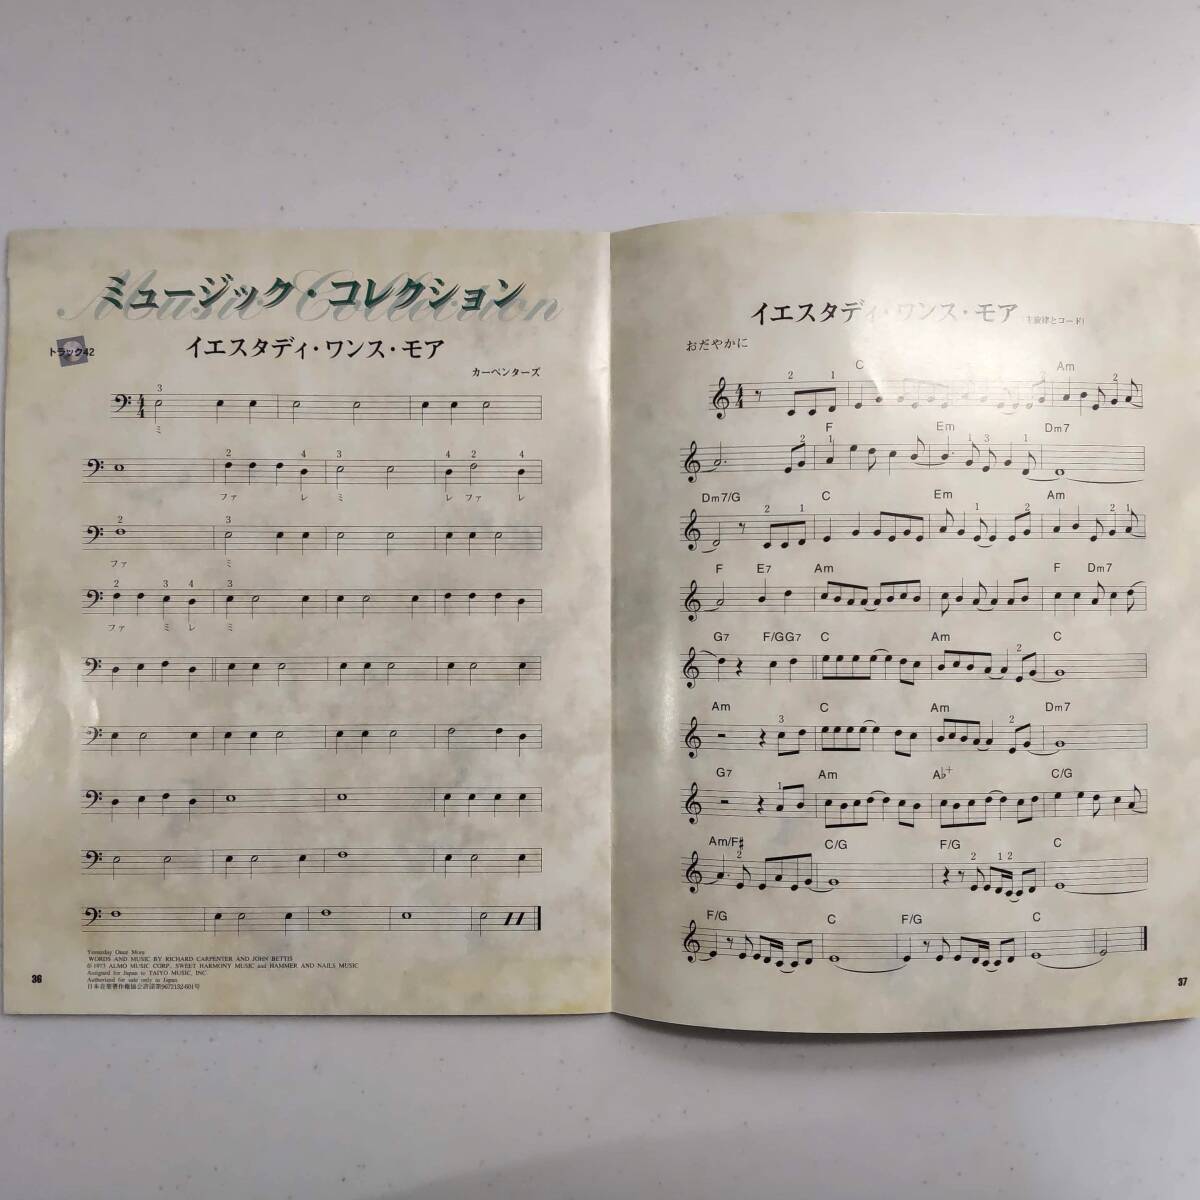 Music Collection
ミュージック・コレクション
トラック42
イエスタディ・ワンス・モア
カーペンターズ
3
ミ
2 4 3 4 2 4
ファ レ ミ レ ファ レ
2 3
ファ ミ
2 3 4 3
ファ ミ レ ミ
Yesterday Once More
WORDS AND MUSIC BY RICHARD CARPENTER AND JOHN BETTIS
© 1973 ALMO MUSIC CORP., SWEET HARMONY MUSIC and HAMMER AND NAILS MUSIC
Assigned for Japan to TAIYO MUSIC, INC
Authorized for sale only in Japan
日本音楽著作権協会許諾第9672132-601号
36
イエスタディ・ワンス・モア (主旋律とコード)
おだやかに
C Am
2 1 2 2
F Em Dm7
2 1 1 3 1
Dm7/G C Em Am
2 1 1 2 2 1
F E7 Am F Dm7
G7 F/G G7 C Am C
2
Am C Am Dm7
3 2
G7 Am A♭+ C/G
1
Am/F# C/G F/G C
2 2 1 2
F/G C F/G C
37